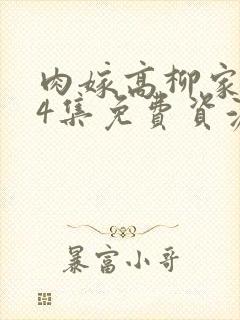 肉嫁高柳家
4集免費資
暴富小哥